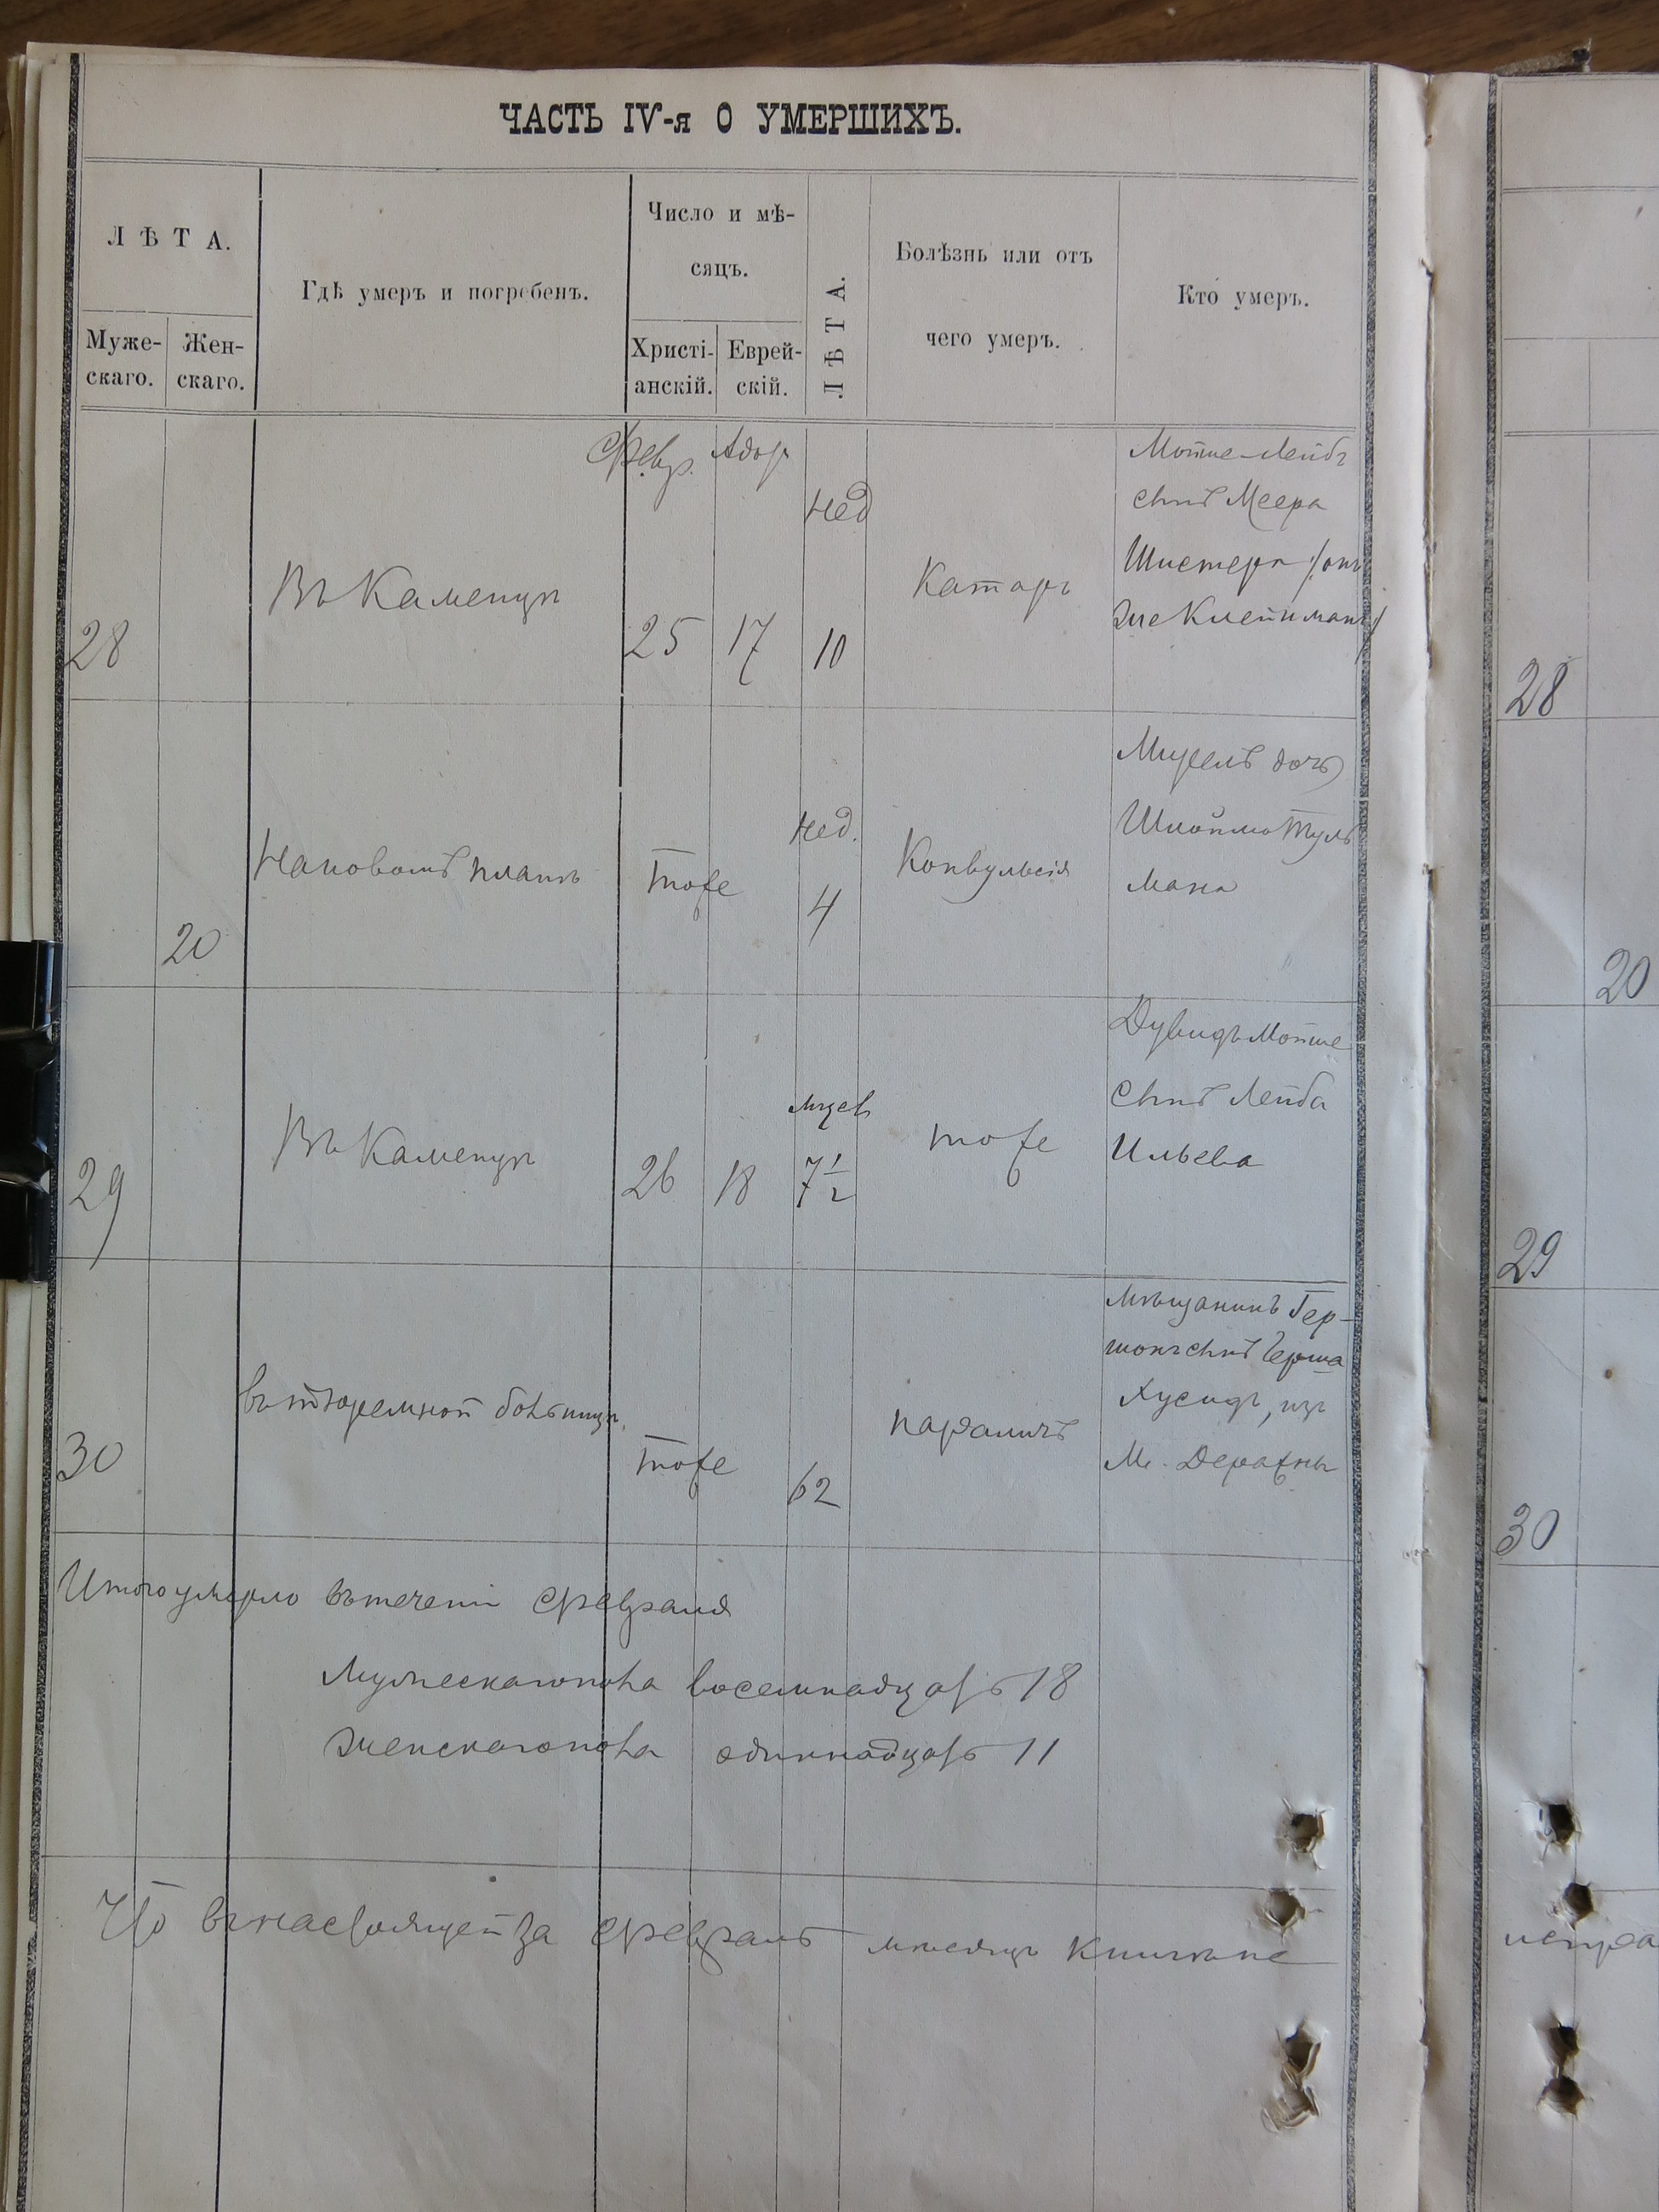 ЧАСТЬ IV-я О УМЕРШИХЪ.
Л Ѣ Т А.
Муже-
скаго.
Жен-
скаго.
Гдѣ умеръ и погребенъ.
Число и мѣ-
сяцъ.
Христі-
анскій.
Еврей-
скій.
Л Ѣ Т А.
Болѣзнь или отъ
чего умеръ.
Кто умеръ.
28
Въ Каменцѣ
Февр.
25
Адаръ
17
Нед
10
Катаръ
Мойше-Лейбъ
сынъ Меера
Шистера /онъ
же Клейтманъ/
20
На новомъ планѣ
тоже
Нед.
4
Конвульсія
дочь
Шлоймо Туль
мана
29
Въ Каменцѣ
26
18
мцев
7 1/2
тоже
Дувидъ Мойше
сынъ Лейба
Ильева
30
въ тюремной больницѣ
тоже
62
параличъ
мѣщанинъ Гер-
шонъ сынъ Герша
Хусидъ, изъ
М. Деражны
Итого умерло въ течени Февраля
Мужескаго пола восемнадцать 18
Женскаго пола одиннадцать 11
Что въ настоящей за Февраль мѣсяцъ книгѣ не
28
20
29
30